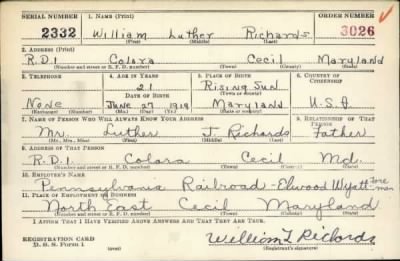 SERIAL NUMBER 1. NAME (Print) ORDER NUMBER
2332 William Luther Richards 3026
(First) (Middle) (Last)
2. ADDRESS (Print)
R.D.1 Colora Cecil Maryland
(Number and street or R. F. D. number) (Town) (County) (State)
3. TELEPHONE 4. AGE IN YEARS 5. PLACE OF BIRTH 6. COUNTRY OF CITIZENSHIP
21 Rising Sun
DATE OF BIRTH (Town or county)
None June 27 1919 Maryland U.S.A.
(Exchange) (No.) (Mo.) (Day) (Yr.) (State or country)
7. NAME OF PERSON WHO WILL ALWAYS KNOW YOUR ADDRESS 8. RELATIONSHIP OF THAT PERSON
Mr. Luther J. Richards Father
(Mr., Mrs., Miss) (First) (Middle) (Last)
9. ADDRESS OF THAT PERSON
R.D.1 Colora Cecil Md.
(Number and street or R. F. D. number) (Town) (County) (State)
10. EMPLOYER'S NAME
Pennsylvania Railroad - Elwood Wyatt Foreman
11. PLACE OF EMPLOYMENT OR BUSINESS
North East Cecil Maryland
(Number and street or R. F. D. number) (Town) (County) (State)
I AFFIRM THAT I HAVE VERIFIED ABOVE ANSWERS AND THAT THEY ARE TRUE.
REGISTRATION CARD William L Richards
D. S. S. Form 1 (over) (Registrant's signature)